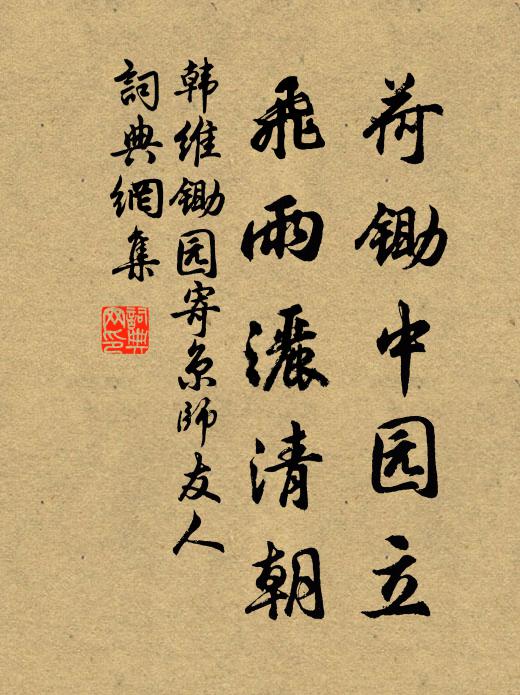 荷锄中园立
飛雨灑清朝
韩维锄园寄京師友人
詞典網集
詞典网印